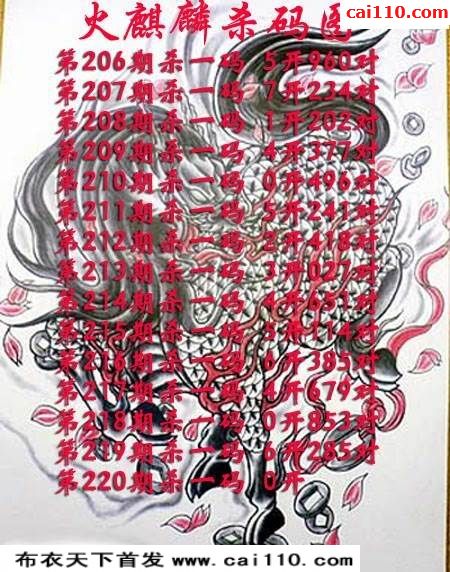 cai110.com
火麒麟杀码图
第206期杀一码 5开960对
第207期杀一码 7开234对
第208期杀一码 1开202对
第209期杀一码 4开377对
第210期杀一码 0开496对
第211期杀一码 5开241对
第212期杀一码 2开418对
第213期杀一码 3开027对
第214期杀一码 4开651对
第215期杀一码 5开114对
第216期杀一码 6开385对
第217期杀一码 4开679对
第218期杀一码 0开853对
第219期杀一码 6开285对
第220期杀一码 0开
布衣天下首发 www.cai110.com